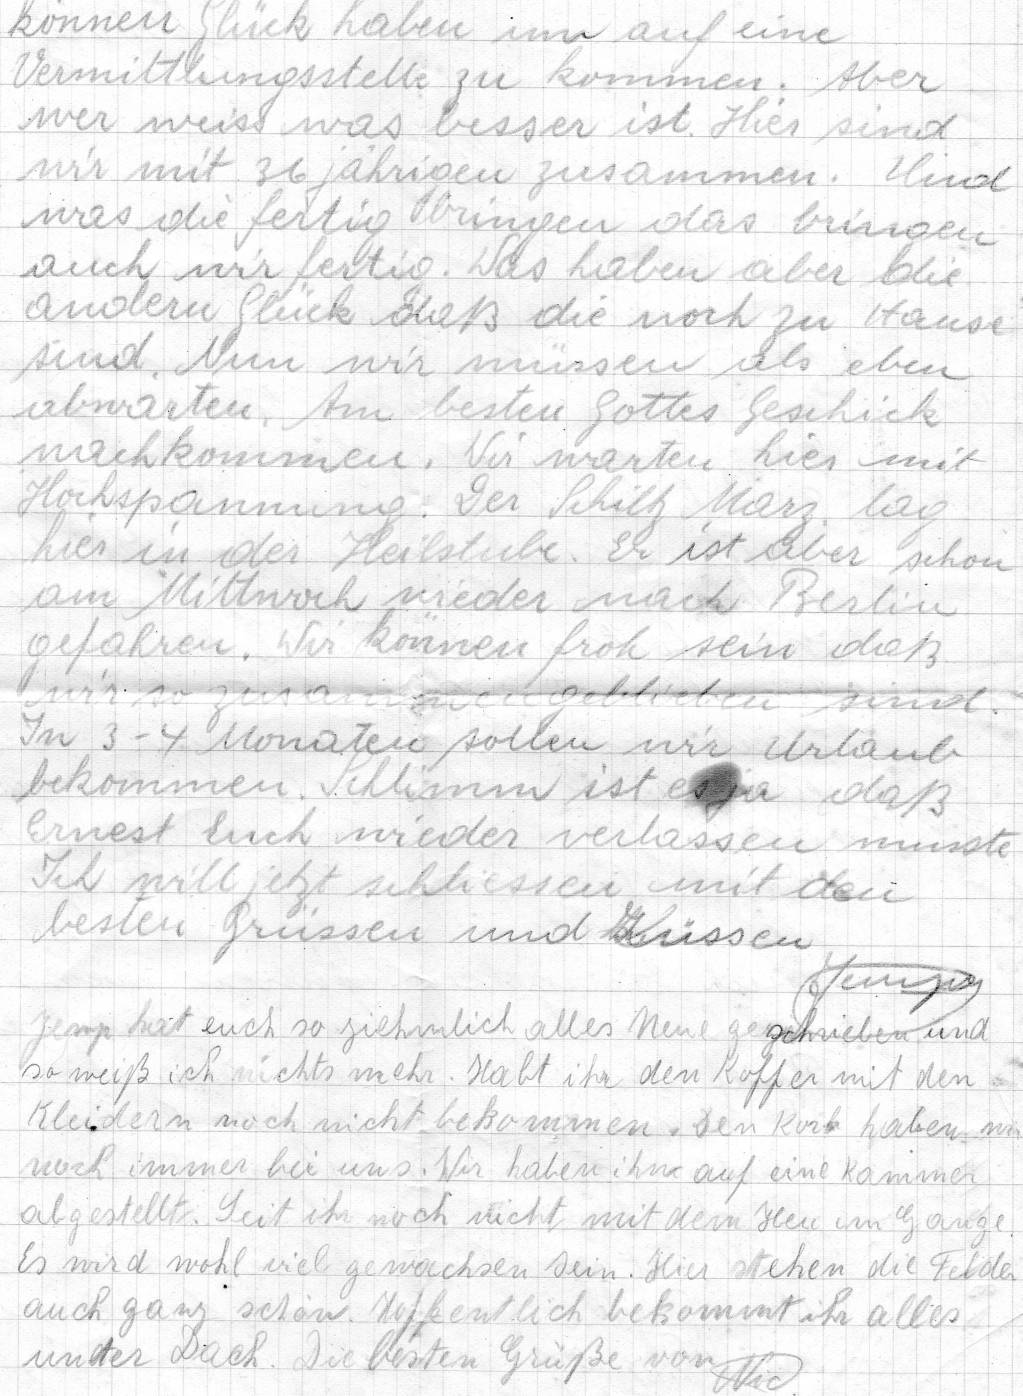 können Glück haben um auf eine
Vermittlungsstelle zu kommen. Aber
wer weiss was besser ist. Hier sind
wir mit 36 jährigen zusammen. Und
was die fertig bringen das bringen
auch wir fertig. Was haben aber die
andern Glück daß die noch zu Hause
sind. Nun wir müssen als eben
abwarten. Am besten Gottes Geschick
nachkommen. Wir warten hier mit
Hochspannung. Der Schiltz Marz. lag
hier in der Heilstube. Er ist aber schon
am Mittwoch wieder nach Berlin
gefahren. Wir können froh sein daß
wir so zusammengeblieben sind.
In 3-4 Monaten sollen wir Urlaub
bekommen. Schlimm ist es ja daß
Ernest Euch wieder verlassen musste
Ich will jetzt schliessen mit den
besten Grüssen und Küssen
Jemp hat euch so ziehmlich alles Neue geschrieben und
so weiß ich nichts mehr. Habt ihr den Koffer mit den
Kleidern noch nicht bekommen. Den Korb haben wir
noch immer bei uns. Wir haben ihn auf eine Kammer
abgestellt. Seit ihr noch nicht mit dem Heu im Gange.
Es wird wohl viel gewachsen sein. Hier stehen die Felder
auch ganz schön. Hoffentlich bekommt ihr alles
unter Dach. Die besten Grüße von Nic